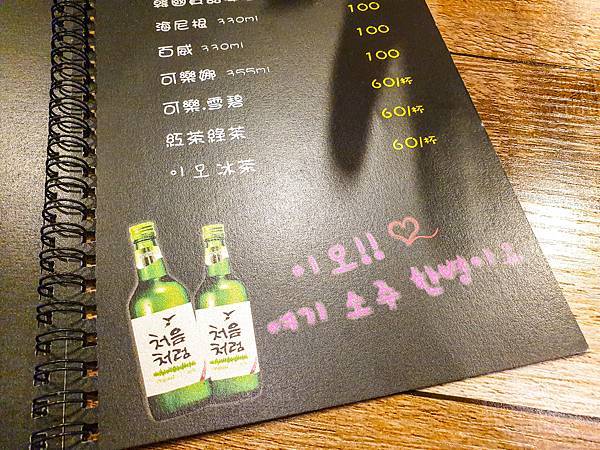 韓國真露
海尼根 330ml 100
百威 330ml 100
可樂娜 355ml 100
可樂.雪碧 60/杯
紅茶綠茶 60/杯
이모冰茶 60/杯
이모!!
여기 소주 한병이요
처음
처럼
처음
처럼